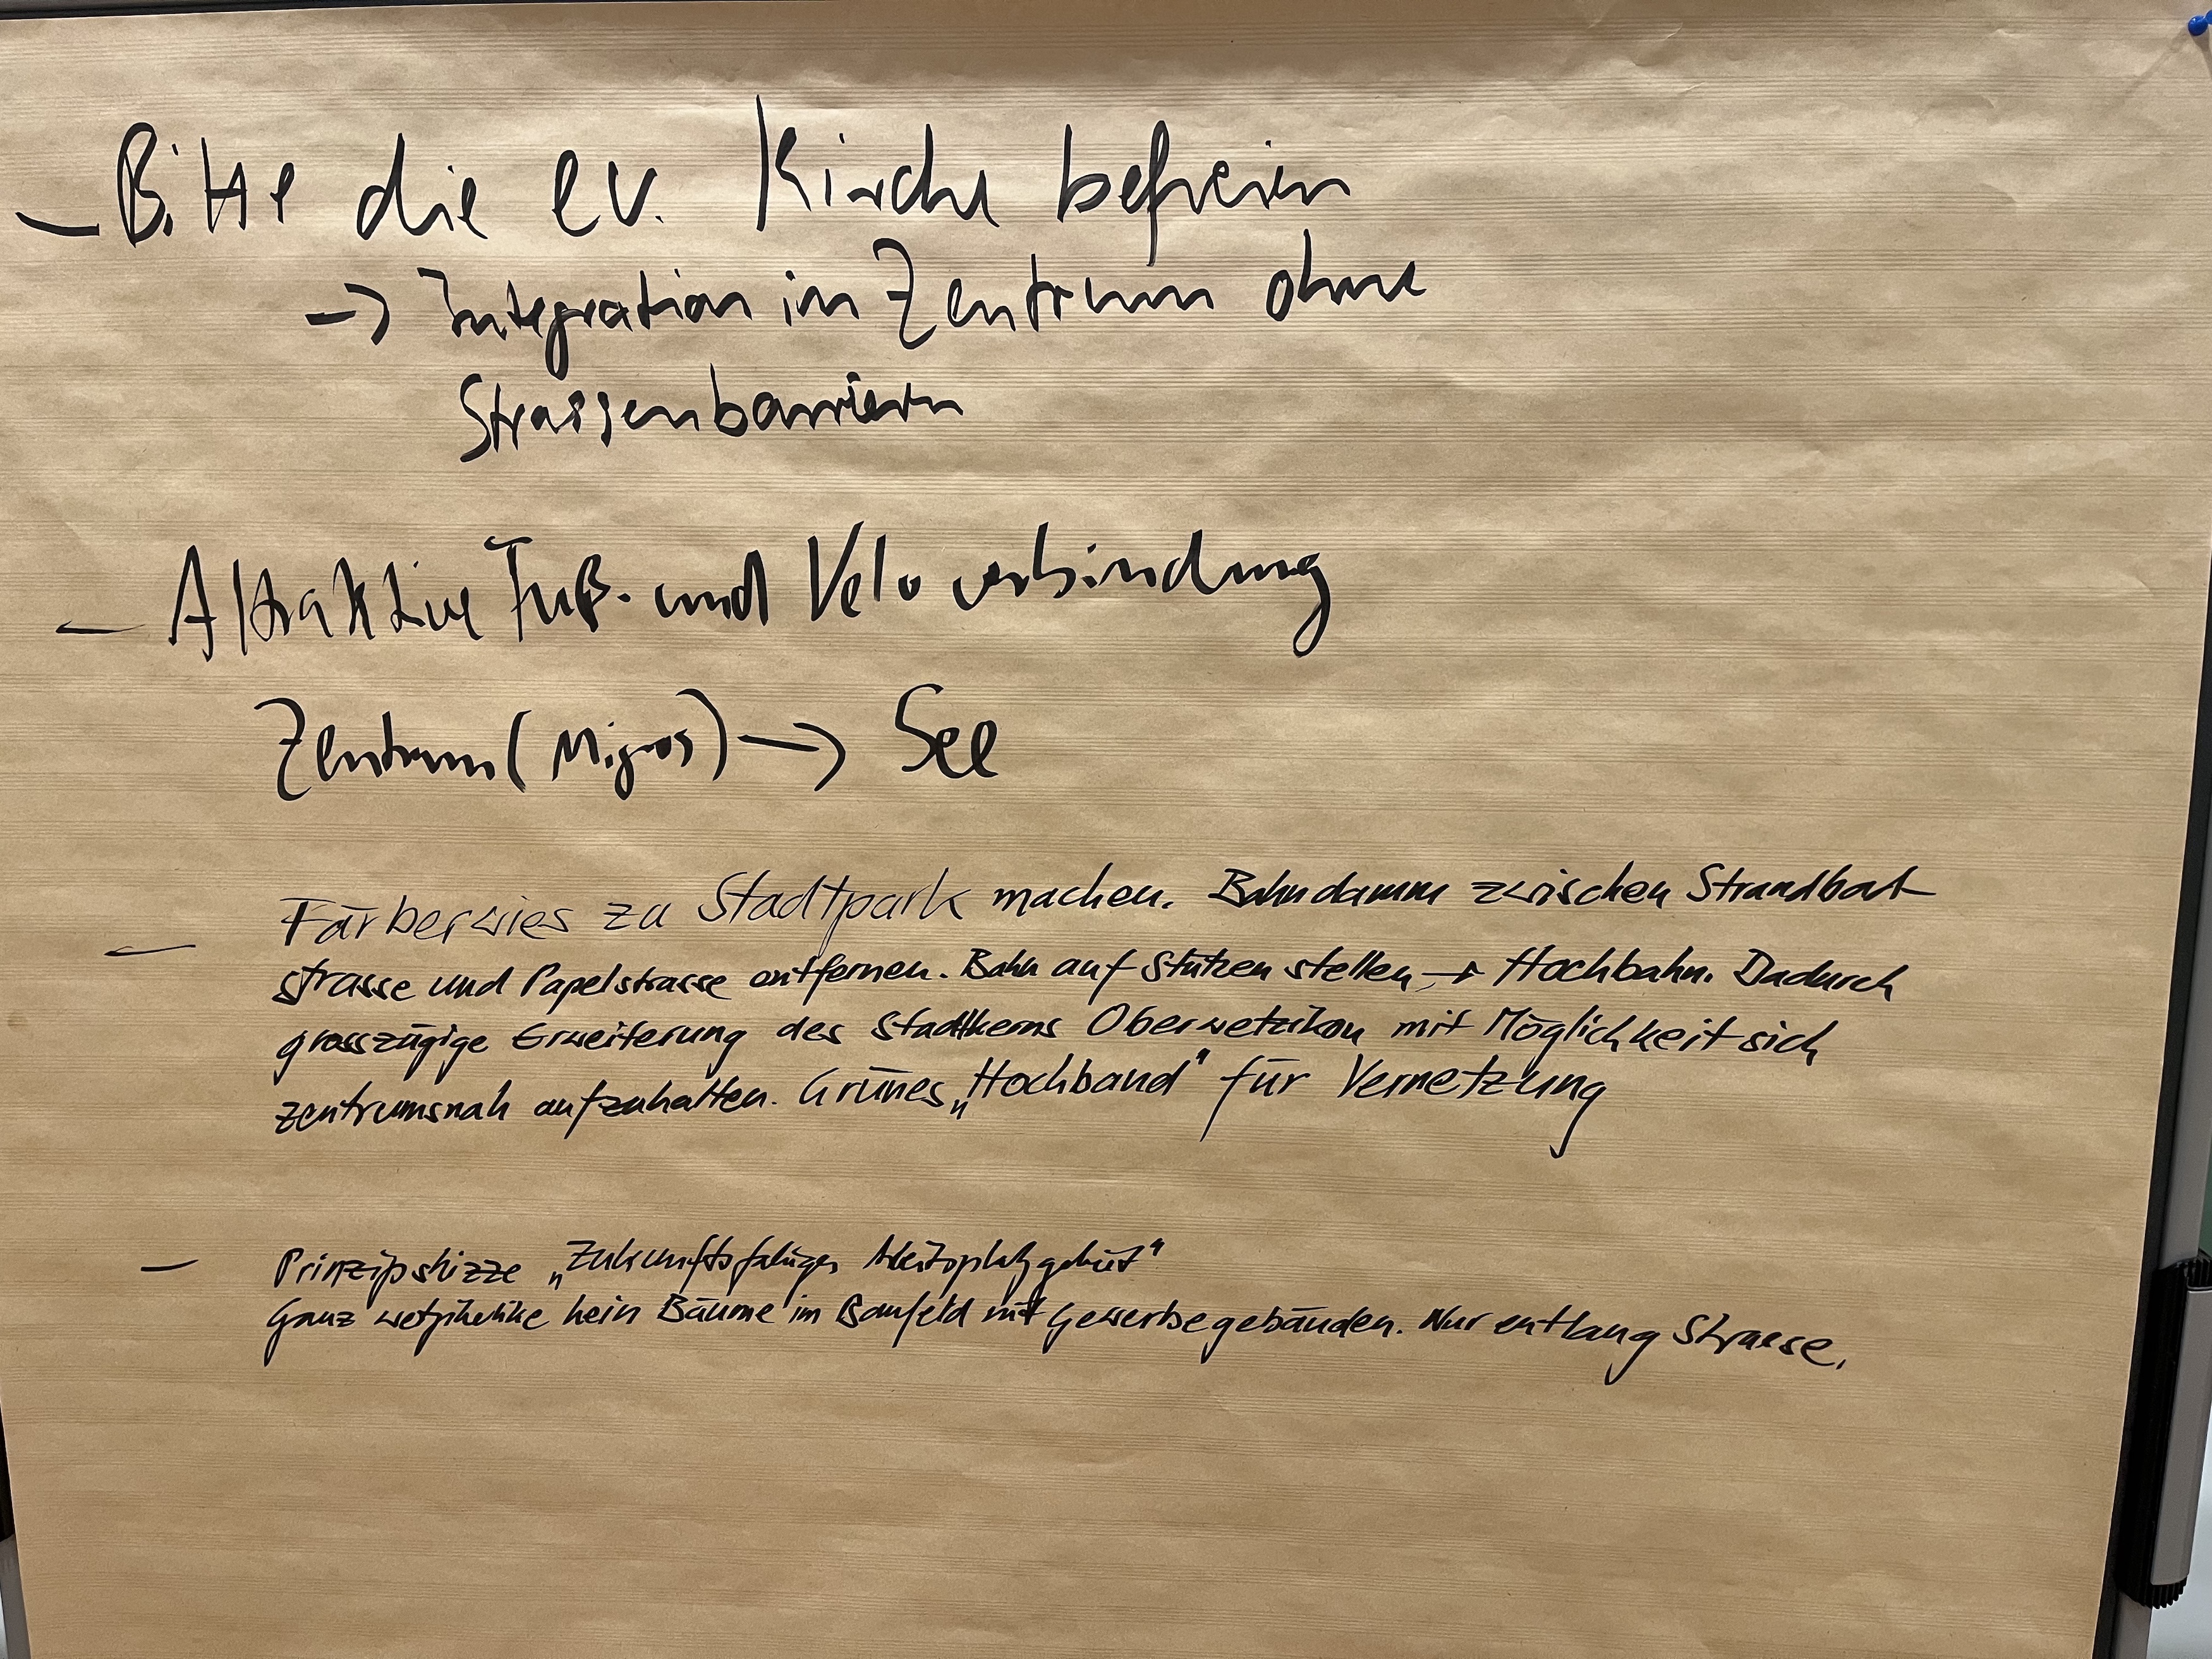 - Bitte die ev. Kirche befreien
→ Integration im Zentrum ohne
Strassenbarrieren
- Attraktive Fuß- und Veloverbindung
Zentrum (Migros) → See
- Färberwies zu Stadtpark machen. Bahndamm zwischen Strandbad
strasse und Papelstrasse entfernen. Bahn auf Stützen stellen → Hochbahn. Dadurch
grosszügige Erweiterung des Stadtkerns Oberwetzikon mit Möglichkeit sich
zentrumsnah aufzuhalten. Grünes „Hochband" für Vernetzung
- Prinzipskizze „Zukunftsfähiges Arbeitsplatzgebiet"
Ganz kein Bäume im Baufeld mit Gewerbegebäuden. Nur entlang Strasse.